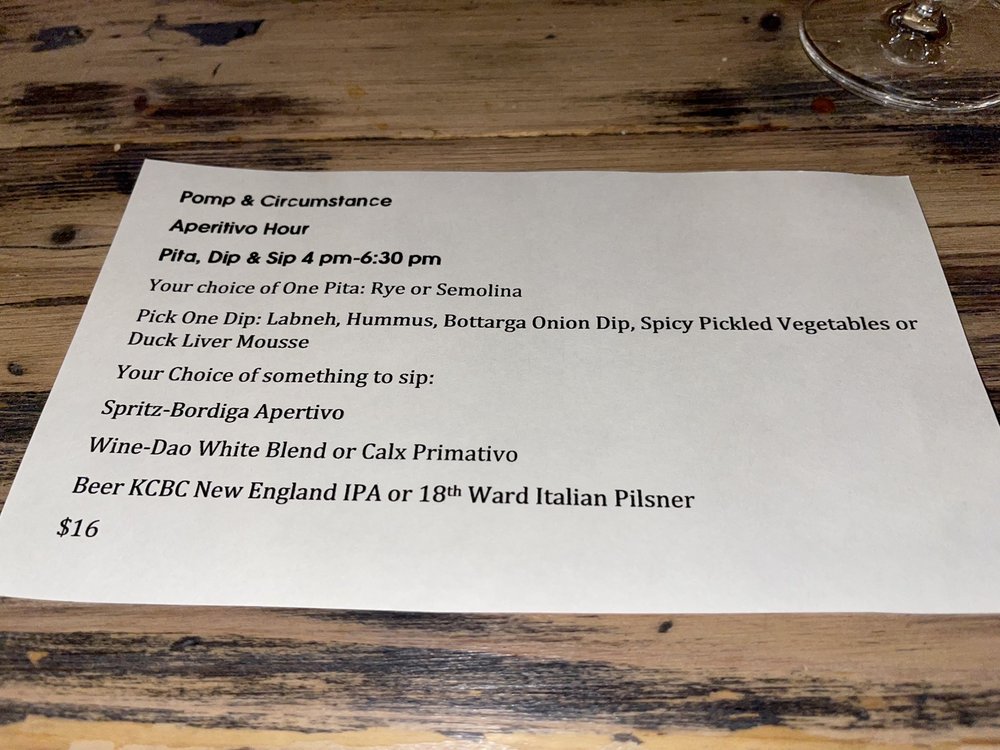 Pomp & Circumstance
Aperitivo Hour
Pita, Dip & Sip 4 pm-6:30 pm
Your choice of One Pita: Rye or Semolina
Pick One Dip: Labneh, Hummus, Bottarga Onion Dip, Spicy Pickled Vegetables or
Duck Liver Mousse
Your Choice of something to sip:
Spritz-Bordiga Apertivo
Wine-Dao White Blend or Calx Primativo
Beer KCBC New England IPA or 18th Ward Italian Pilsner
$16